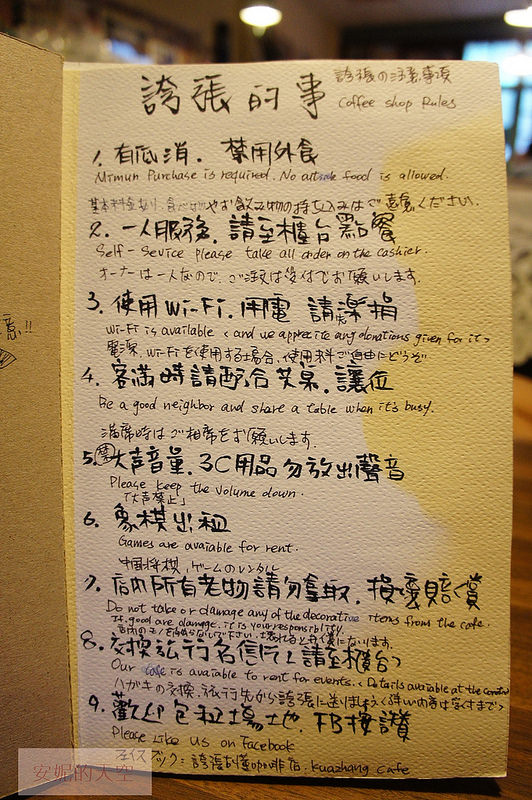 誇張的事 誇張の注意事項
Coffee shop Rules
1. 有低消. 禁用外食
Mimun Purchase is required. No outside food is allowed.
基本料金あり. 食べ物やお飲み物の持ち込みはご遠慮ください.
2. 一人服務. 請至櫃台點餐
Self-Sevice please take all order on the cashier.
オーナーは一人なので、ご注文は受付でお願いします.
3. 使用Wi-Fi. 用電 請樂捐
Wi-Fi is available <and we appretite any donations given for it>
電源、Wi-Fiを使用する場合、使用料ご自由にどうぞ
4. 客滿時請配合共桌. 讓位
Be a good neighbor and share a table when it's busy.
満席時はご相席をお願いします.
5. 禁大声音量. 3C用品勿放出聲音
Please keep the volume down.
「大声禁止」
6. 象棋出租
Games are avaiable for rent.
中国将棋、ゲームのレンタル
7. 店內所有老物請勿拿取. 損壞賠償
Do not take or damage any of the decorative items from the cafe.
If good are damage. it is your responsiblity.
8. 交換旅行名信片<請至櫃台>
Our cafe is avaiable to rent for events. <Details avaiable at the counter>
ハガキの交換、旅行先から誇張に送りましょう<詳い内容は
9. 歡迎包租場地. FB按讚
Please Like Us on Facebook
フェイスブック: 誇張 咖啡店. Kuazhang Cafe
意!!
安妮的天空